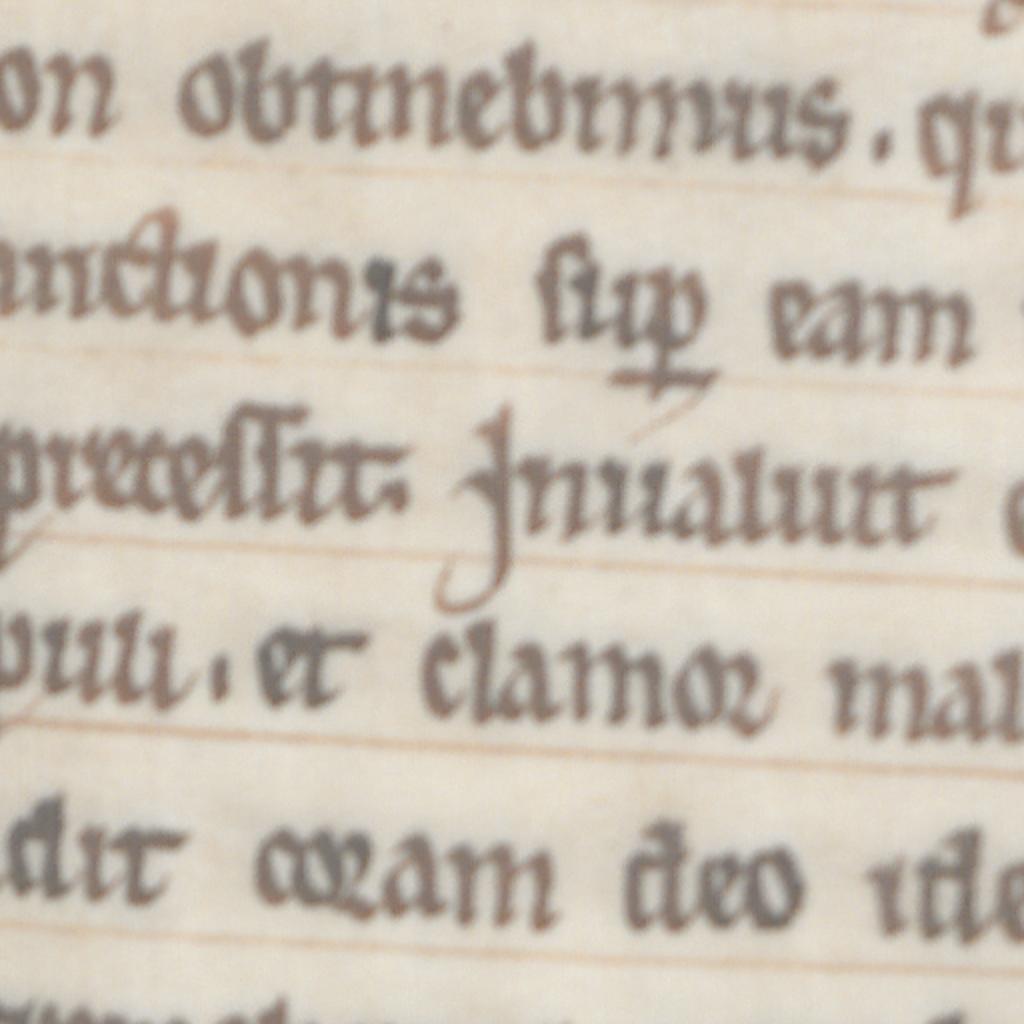 on obtinebimus. qu
anctionis sup̲ eam
precessit. Jnualuit
puli. et clamor mal
dit coram deo ide